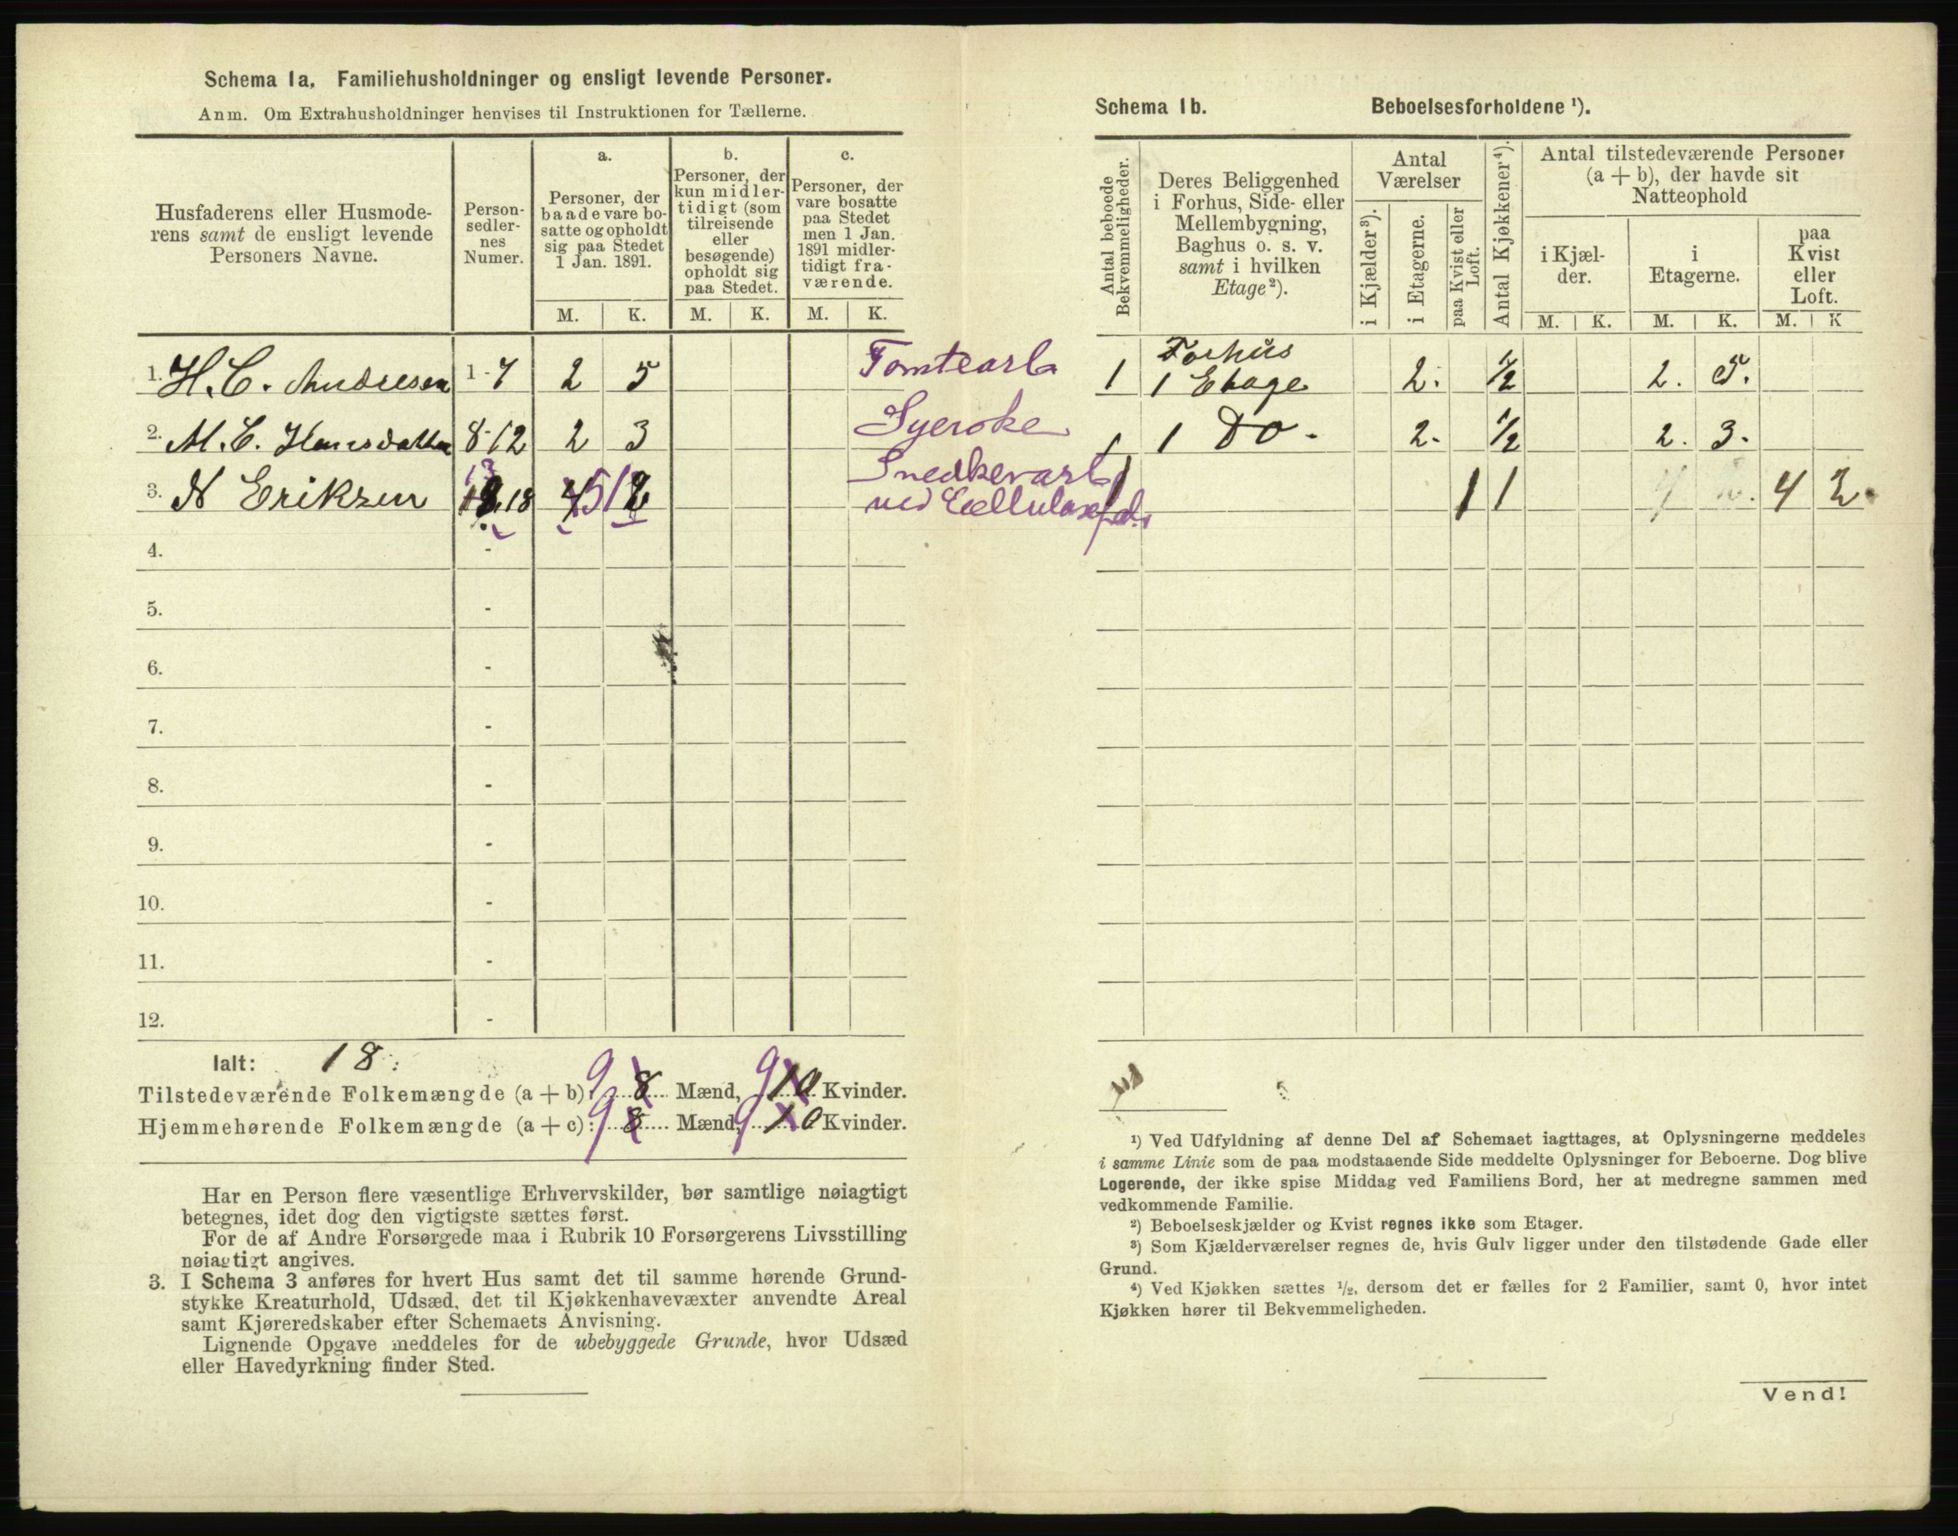 Schema 1a. Familiehusholdninger og ensligt levende Personer.
Anm. Om Extrahusholdninger henvises til Instruktionen for Tællerne.
Husfaderens eller Husmode-
rens samt de ensligt levende
Personers Navne.
Person-
sedler-
nes
Numer.
a.
Personer, der
baade vare bo-
satte og opholdt
sig paa Stedet
1 Jan. 1891.
b.
Personer, der
kun midler-
tidigt (som
tilreisende
eller
besøgende)
opholdt sig
paa Stedet.
c.
Personer, der
vare bosatte
paa Stedet
men 1 Jan.
1891 midler-
tidigt fra-
værende.
M. K. M. K. M. K.
1. H. C. Andresen 1-7 2 5 Tomtearb
2. M. C. Hansdatter 8-12 2 3 Syerske
3. N Eriksen 13-18 5 1 Snedkerarb
ved Cellulosefab.
4. -
5. -
6. -
7. -
8. -
9. -
10. -
11. -
12. -
Ialt: 18.
Tilstedeværende Folkemængde (a + b): 9 8 Mænd, 9 10 Kvinder.
Hjemmehørende Folkemængde (a + c): 9 8 Mænd, 9 10 Kvinder.
Har en Person flere væsentlige Erhvervskilder, bør samtlige nøiagtigt
betegnes, idet dog den vigtigste sættes først.
For de af Andre Forsørgede maa i Rubrik 10 Forsørgerens Livsstilling
nøiagtigt angives.
3. I Schema 3 anføres for hvert Hus samt det til samme hørende Grund-
stykke Kreaturhold, Udsæd, det til Kjøkkenhavevæxter anvendte Areal
samt Kjøreredskaber efter Schemaets Anvisning.
Lignende Opgave meddeles for de ubebyggede Grunde, hvor Udsæd
eller Havedyrkning finder Sted.
Schema 1b. Beboelsesforholdene ¹).
Antal beboede
Bekvemmeligheder.
Deres Beliggenhed
i Forhus, Side- eller
Mellembygning,
Baghus o. s. v.
samt i hvilken
Etage ²).
Antal
Værelser
i Kjælder ³).
i Etagerne.
paa Kvist eller
Loft.
Antal Kjøkkener ⁴).
Antal tilstedeværende Personer
(a + b), der havde sit
Natteophold
i Kjæl-
der.
i
Etagerne.
paa
Kvist
eller
Loft.
M. K. M. K. M. K
1 Forhus
1 Etage 2. ½ 2. 5.
1 1 Do. 2. ½ 2. 3.
1 1 1 4 2.
¹) Ved Udfyldning af denne Del af Schemaet iagttages, at Oplysningerne meddeles
i samme Linie som de paa modstaaende Side meddelte Oplysninger for Beboerne. Dog blive
Logerende, der ikke spise Middag ved Familiens Bord, her at medregne sammen med
vedkommende Familie.
²) Beboelseskjælder og Kvist regnes ikke som Etager.
³) Som Kjælderværelser regnes de, hvis Gulv ligger under den tilstødende Gade eller
Grund.
⁴) Ved Kjøkken sættes ½, dersom det er fælles for 2 Familier, samt 0, hvor intet
Kjøkken hører til Bekvemmeligheden.
Vend!